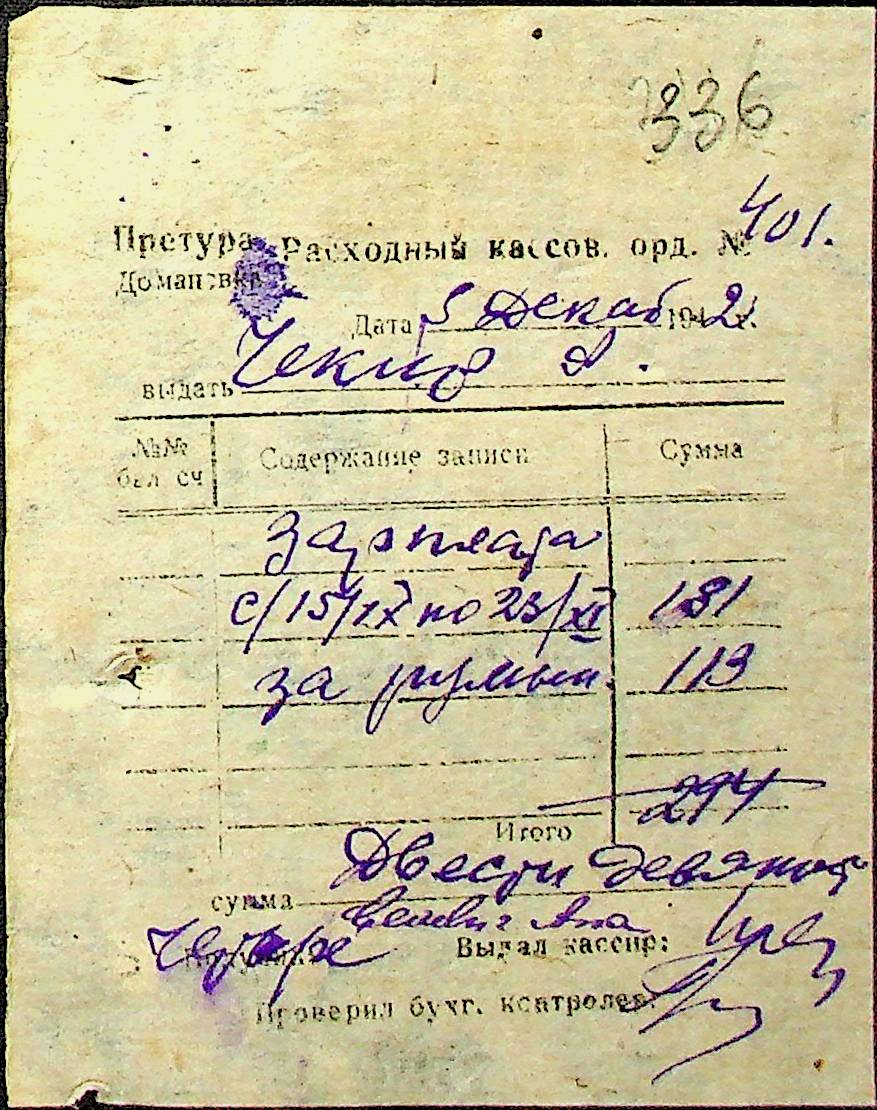 336
Претура Расходный кассов. орд. № 401.
Домановка
Дата 5 Декаб 1942 г.
выдать А.
№№ бал сч Содержание записи Сумма
Зарплата
с/15/IX по 23/XI 181
за румын. 113
Итого 294
сумма Двести девяност
четыре
Выдал кассир:
Проверил бухг. контролер: